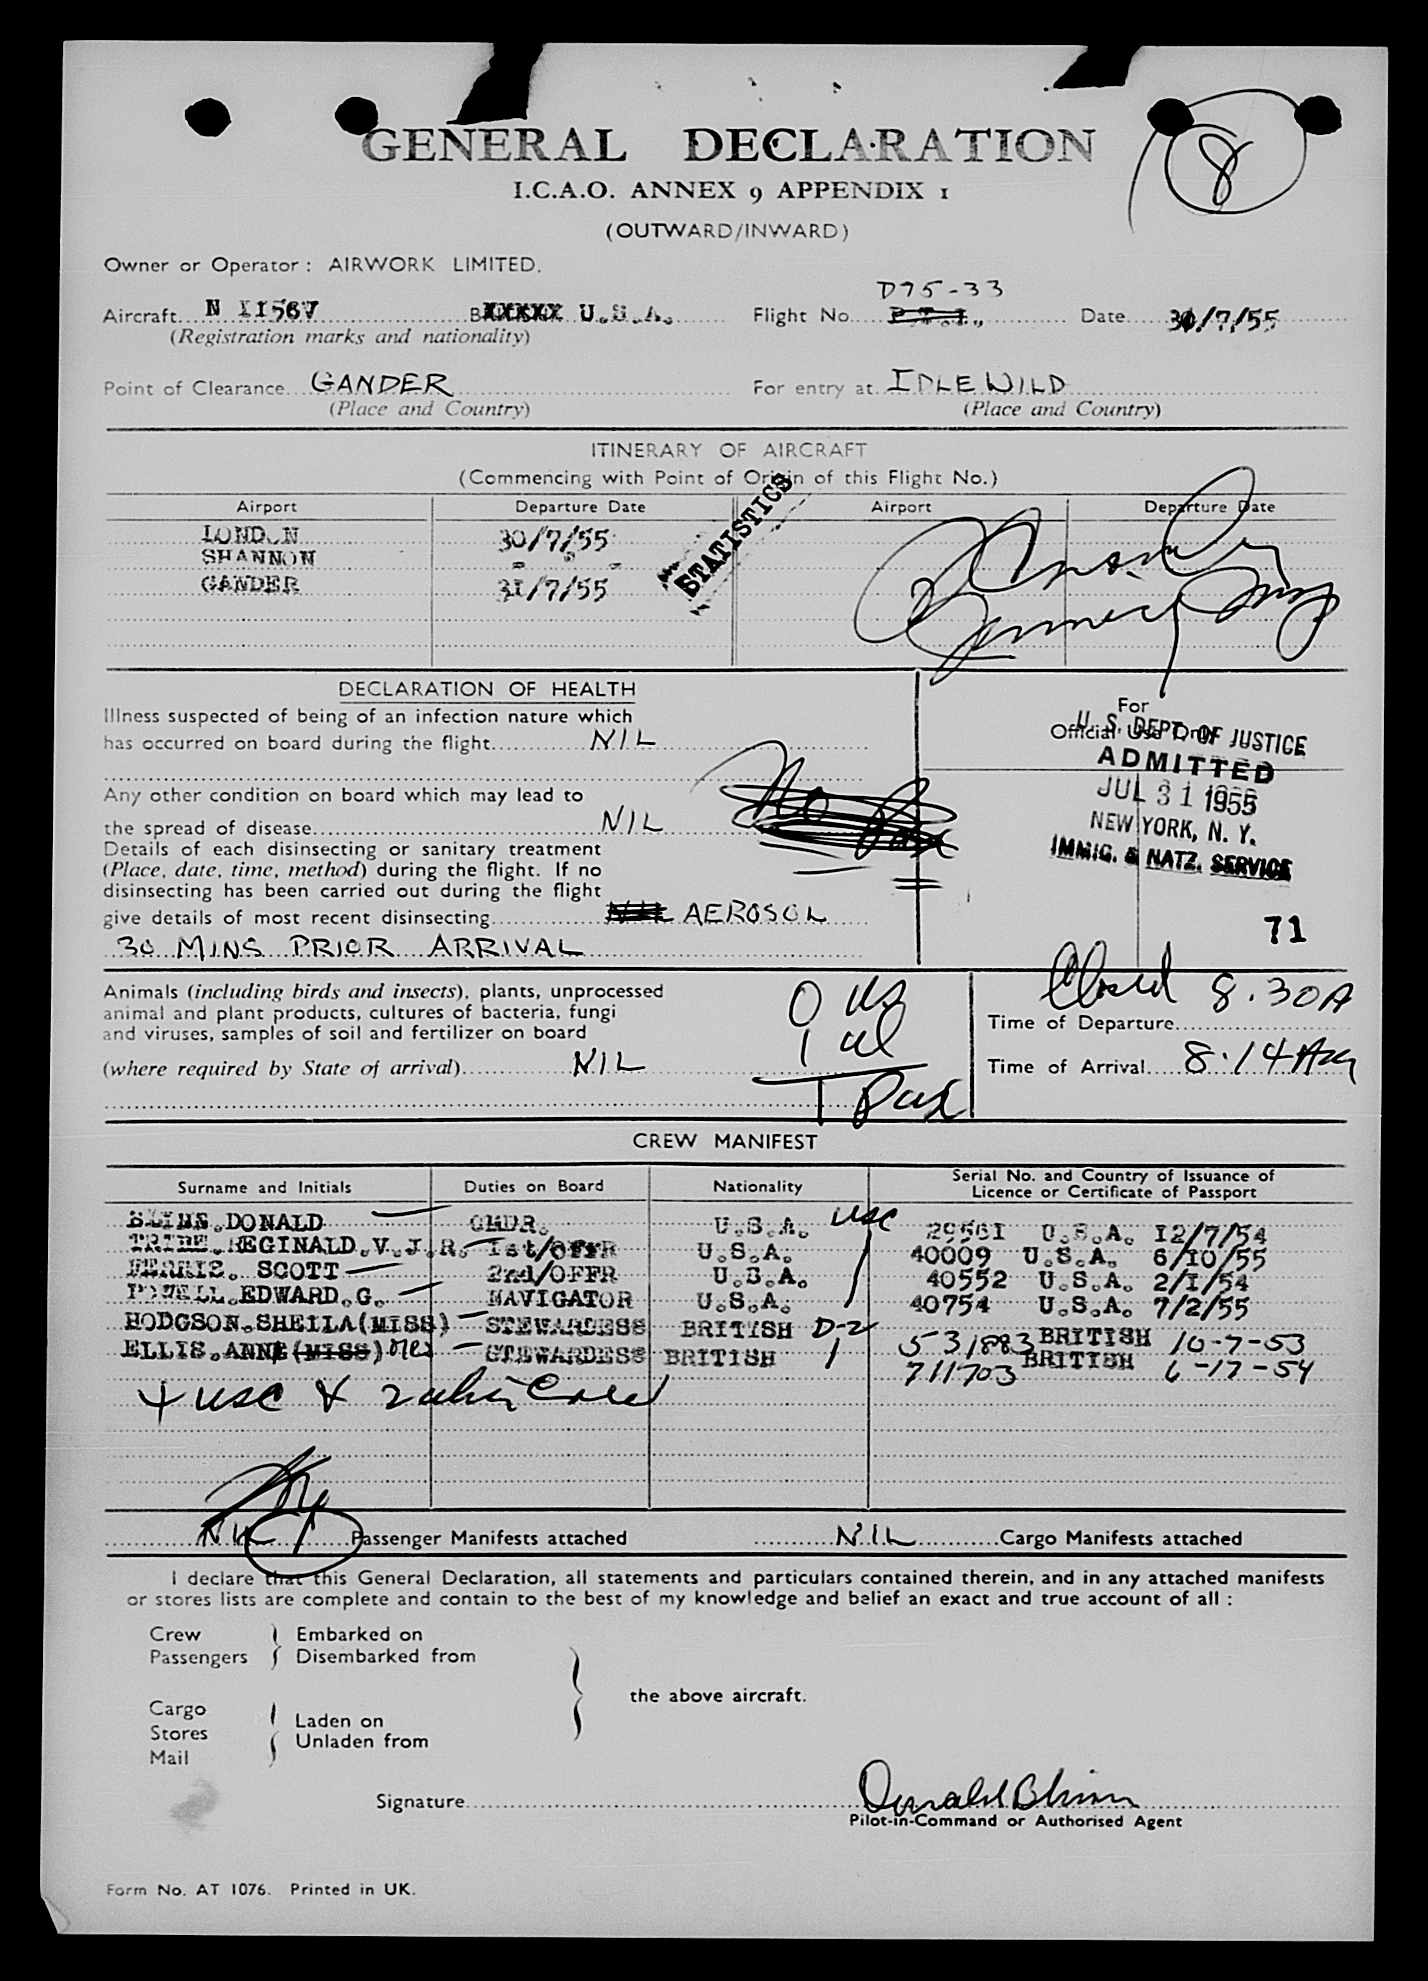 8
GENERAL DECLARATION
I.C.A.O. ANNEX 9 APPENDIX 1
(OUTWARD/INWARD)
Owner or Operator : AIRWORK LIMITED.
D95-33
Aircraft N 1156V U.S.A. Flight No. Date 31/7/55
(Registration marks and nationality)
Point of Clearance GANDER For entry at IDLEWILD
(Place and Country) (Place and Country)
ITINERARY OF AIRCRAFT
(Commencing with Point of Origin of this Flight No.)
Airport Departure Date Airport Departure Date
LONDON 30/7/55
SHANNON " " "
GANDER 31/7/55
STATISTICS
DECLARATION OF HEALTH
Illness suspected of being of an infection nature which
has occurred on board during the flight NIL
Any other condition on board which may lead to
the spread of disease NIL
Details of each disinsecting or sanitary treatment
(Place, date, time, method) during the flight. If no
disinsecting has been carried out during the flight
give details of most recent disinsecting AEROSOL
30 MINS PRIOR ARRIVAL
For
Official Use Only
U. S. DEPT. OF JUSTICE
ADMITTED
JUL 31 1955
NEW YORK, N. Y.
IMMIG. & NATZ. SERVICE
71
Animals (including birds and insects), plants, unprocessed
animal and plant products, cultures of bacteria, fungi
and viruses, samples of soil and fertilizer on board
(where required by State of arrival) NIL
0 us
1 al
1 Pax
Closed 8.30A
Time of Departure
Time of Arrival 8.14 Am
CREW MANIFEST
Surname and Initials Duties on Board Nationality Serial No. and Country of Issuance of
Licence or Certificate of Passport
DONALD CMDR. U.S.A. USC 29561 U.S.A. 12/7/54
TRIBE.REGINALD.V.J.R. 1st/OFFR U.S.A. 40009 U.S.A. 6/10/55
FERRIS. SCOTT 2nd/OFFR U.S.A. 40552 U.S.A. 2/1/54
POWELL.EDWARD.G. NAVIGATOR U.S.A. 40754 U.S.A. 7/2/55
HODGSON.SHEILA(MISS) STEWARDESS BRITISH D-2 531883 BRITISH 10-7-53
ELLIS.ANNE (MISS) Mrs STEWARDESS BRITISH 711703 BRITISH 6-17-54
4 USC & 2 alien Crew
NIL 1 Passenger Manifests attached NIL Cargo Manifests attached
I declare that this General Declaration, all statements and particulars contained therein, and in any attached manifests
or stores lists are complete and contain to the best of my knowledge and belief an exact and true account of all :
Crew Embarked on
Passengers Disembarked from
the above aircraft.
Cargo
Stores
Mail
Laden on
Unladen from
Signature Donald Blinn
Pilot-in-Command or Authorised Agent
Form No. AT 1076. Printed in UK.